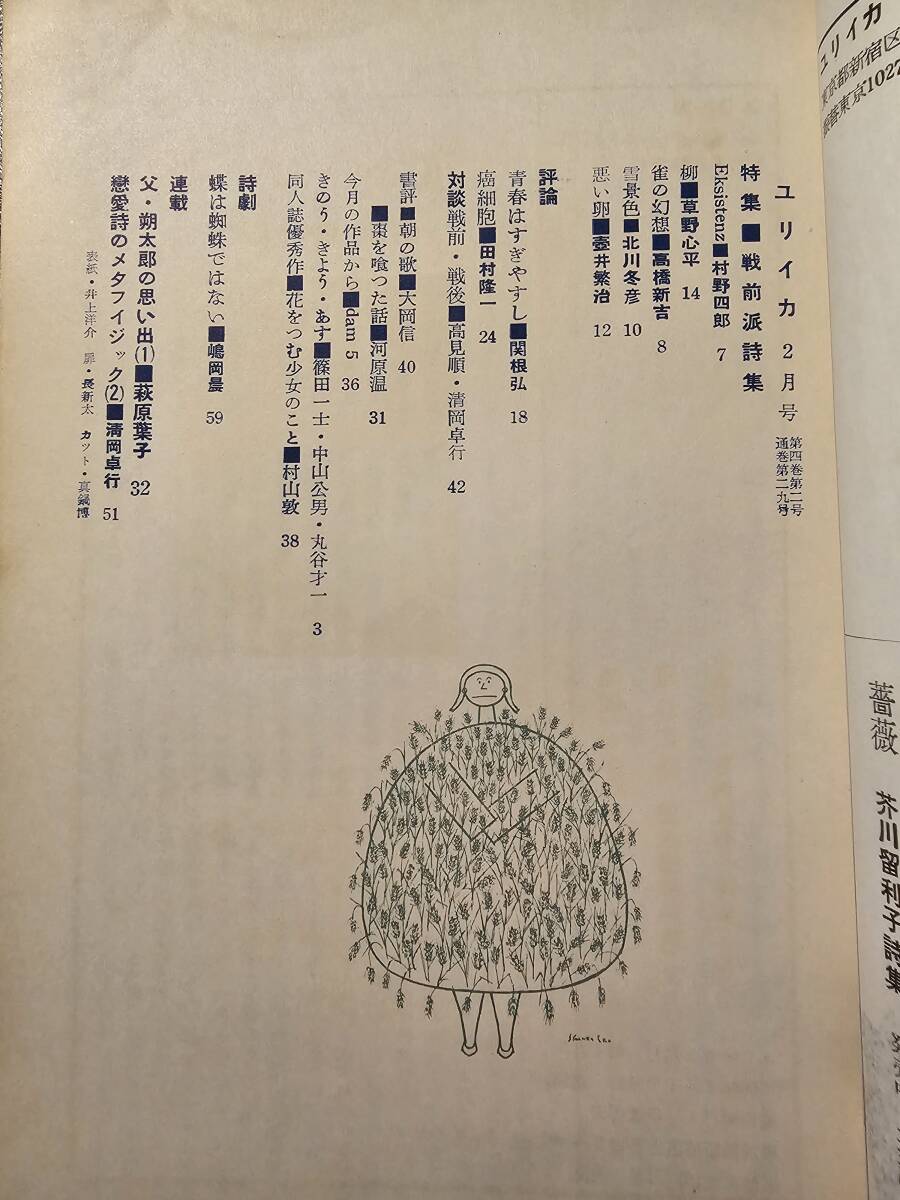 ユリイカ
東京都新宿区
振替東京1027
薔薇 芥川留利子詩集
ユリイカ 2月号 第四巻第二号
通巻第二九号
特集■戦前派詩集
Eksistenz■村野四郎 7
柳■草野心平 14
雀の幻想■高橋新吉 8
雪景色■北川冬彦 10
悪い卵■壺井繁治 12
評論
青春はすぎやすし■関根弘 18
癌細胞■田村隆一 24
対談 戦前・戦後■高見順・清岡卓行 42
書評■朝の歌■大岡信 40
■棗を喰つた話■河原温 31
今月の作品から■dam 5 36
きのう・きよう・あす■篠田一士・中山公男・丸谷才一 3
同人誌優秀作■花をつむ少女のこと■村山敦 38
詩劇
蝶は蜘蛛ではない■嶋岡晨 59
連載
父・朔太郎の思い出(1)■萩原葉子 32
戀愛詩のメタフイジック(2)■清岡卓行 51
表紙・井上洋介 扉・長新太 カット・真鍋博